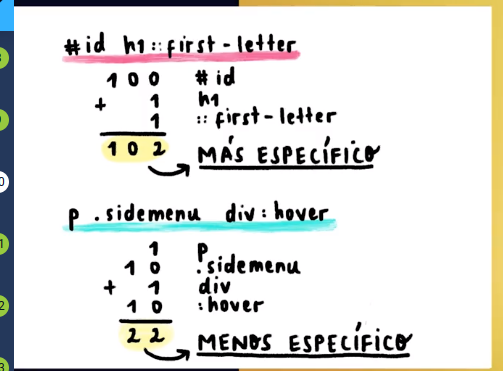 #id h1::first-letter
100 #id
+ 1 h1
1 ::first-letter
102 MÁS ESPECÍFICO
p .sidemenu div:hover
1 p
10 .sidemenu
+ 1 div
10 :hover
22 MENOS ESPECÍFICO